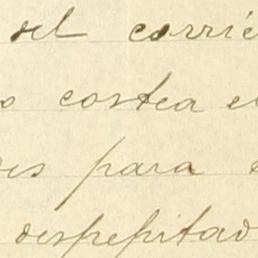 del corrie
o costea el
es para
despepitad